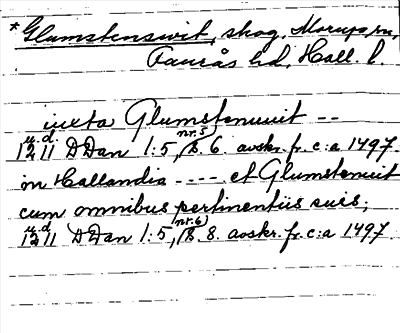 *Glumstenswit, skog, Morups sn,
Faurås hd, Hall. l.
iuxta Glumstenuuit --
u.d.
1211 DDan 1:5, (nr.5) s. 6. avskr. fr. c:a 1497.
in Hallandia ---- et Glumstenuuit
cum omnibus pertinentiis suis;
u.d.
1211 DDan 1:5, (nr.6) s. 8. avskr. fr. c:a 1497.